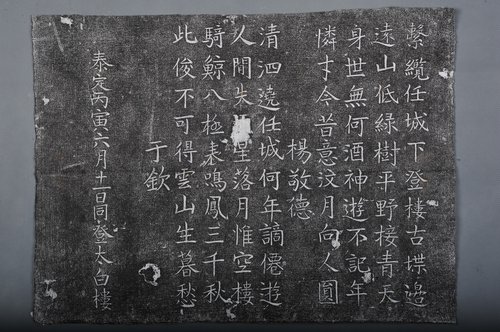 繫纜任城下登樓古堞邉
遠山低綠樹平野接青天
身世無何酒神遊不記年
憐才今昔意汶月向人圓
楊敬德
清泗遶任城何年謫僊遊
人間失星落月惟空樓
騎鯨八極表鳴鳳三千秋
此俊不可得雲山生暮愁
于欽
泰定丙寅六月十一日同登太白樓